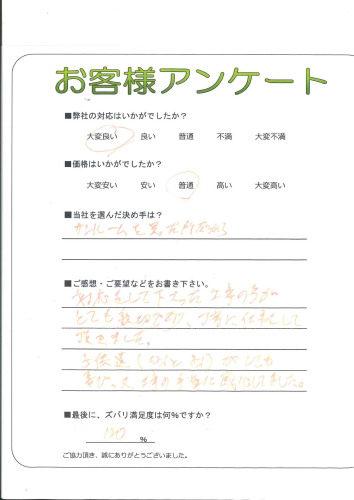 お客様アンケート
■弊社の対応はいかがでしたか？
大変良い 良い 普通 不満 大変不満
■価格はいかがでしたか？
大変安い 安い 普通 高い 大変高い
■当社を選んだ決め手は？
サンルームを買った所だから
■ご感想・ご要望などをお書き下さい。
対応をして下さった工事の方が
とても親切であり、丁寧に仕事して
頂きました。
子供達
喜び、又
■最後に、ズバリ満足度は何%ですか？
120 %
ご協力頂き、誠にありがとうございました。